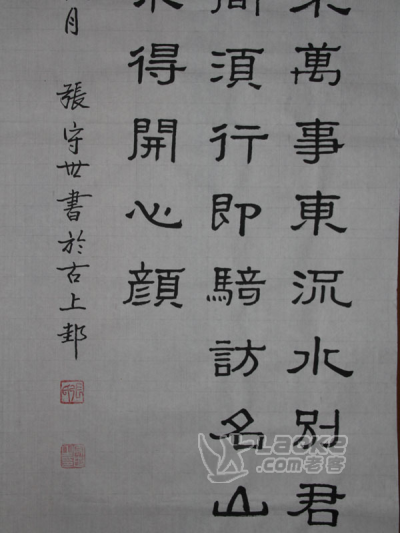 萬事東流水别君
湏行即騎訪名山
得開心顔
月 張守世書於古上邽
Laoke
.com老客